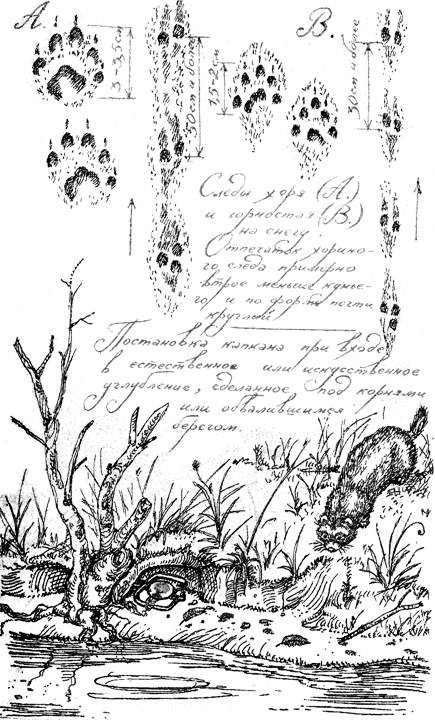 А.
В.
3-3,5см
50см и более
1,5-2см
30см и более
Следы хоря (А.)
и горностая (В.)
на снегу.
Отпечаток хорино-
го следа примерно
втрое меньше кунье-
го и по форме почти
круглый
Постановка капкана при входе
в естественное или искусственное
углубление, сделанное под корнями
или обвалившимся
берегом.